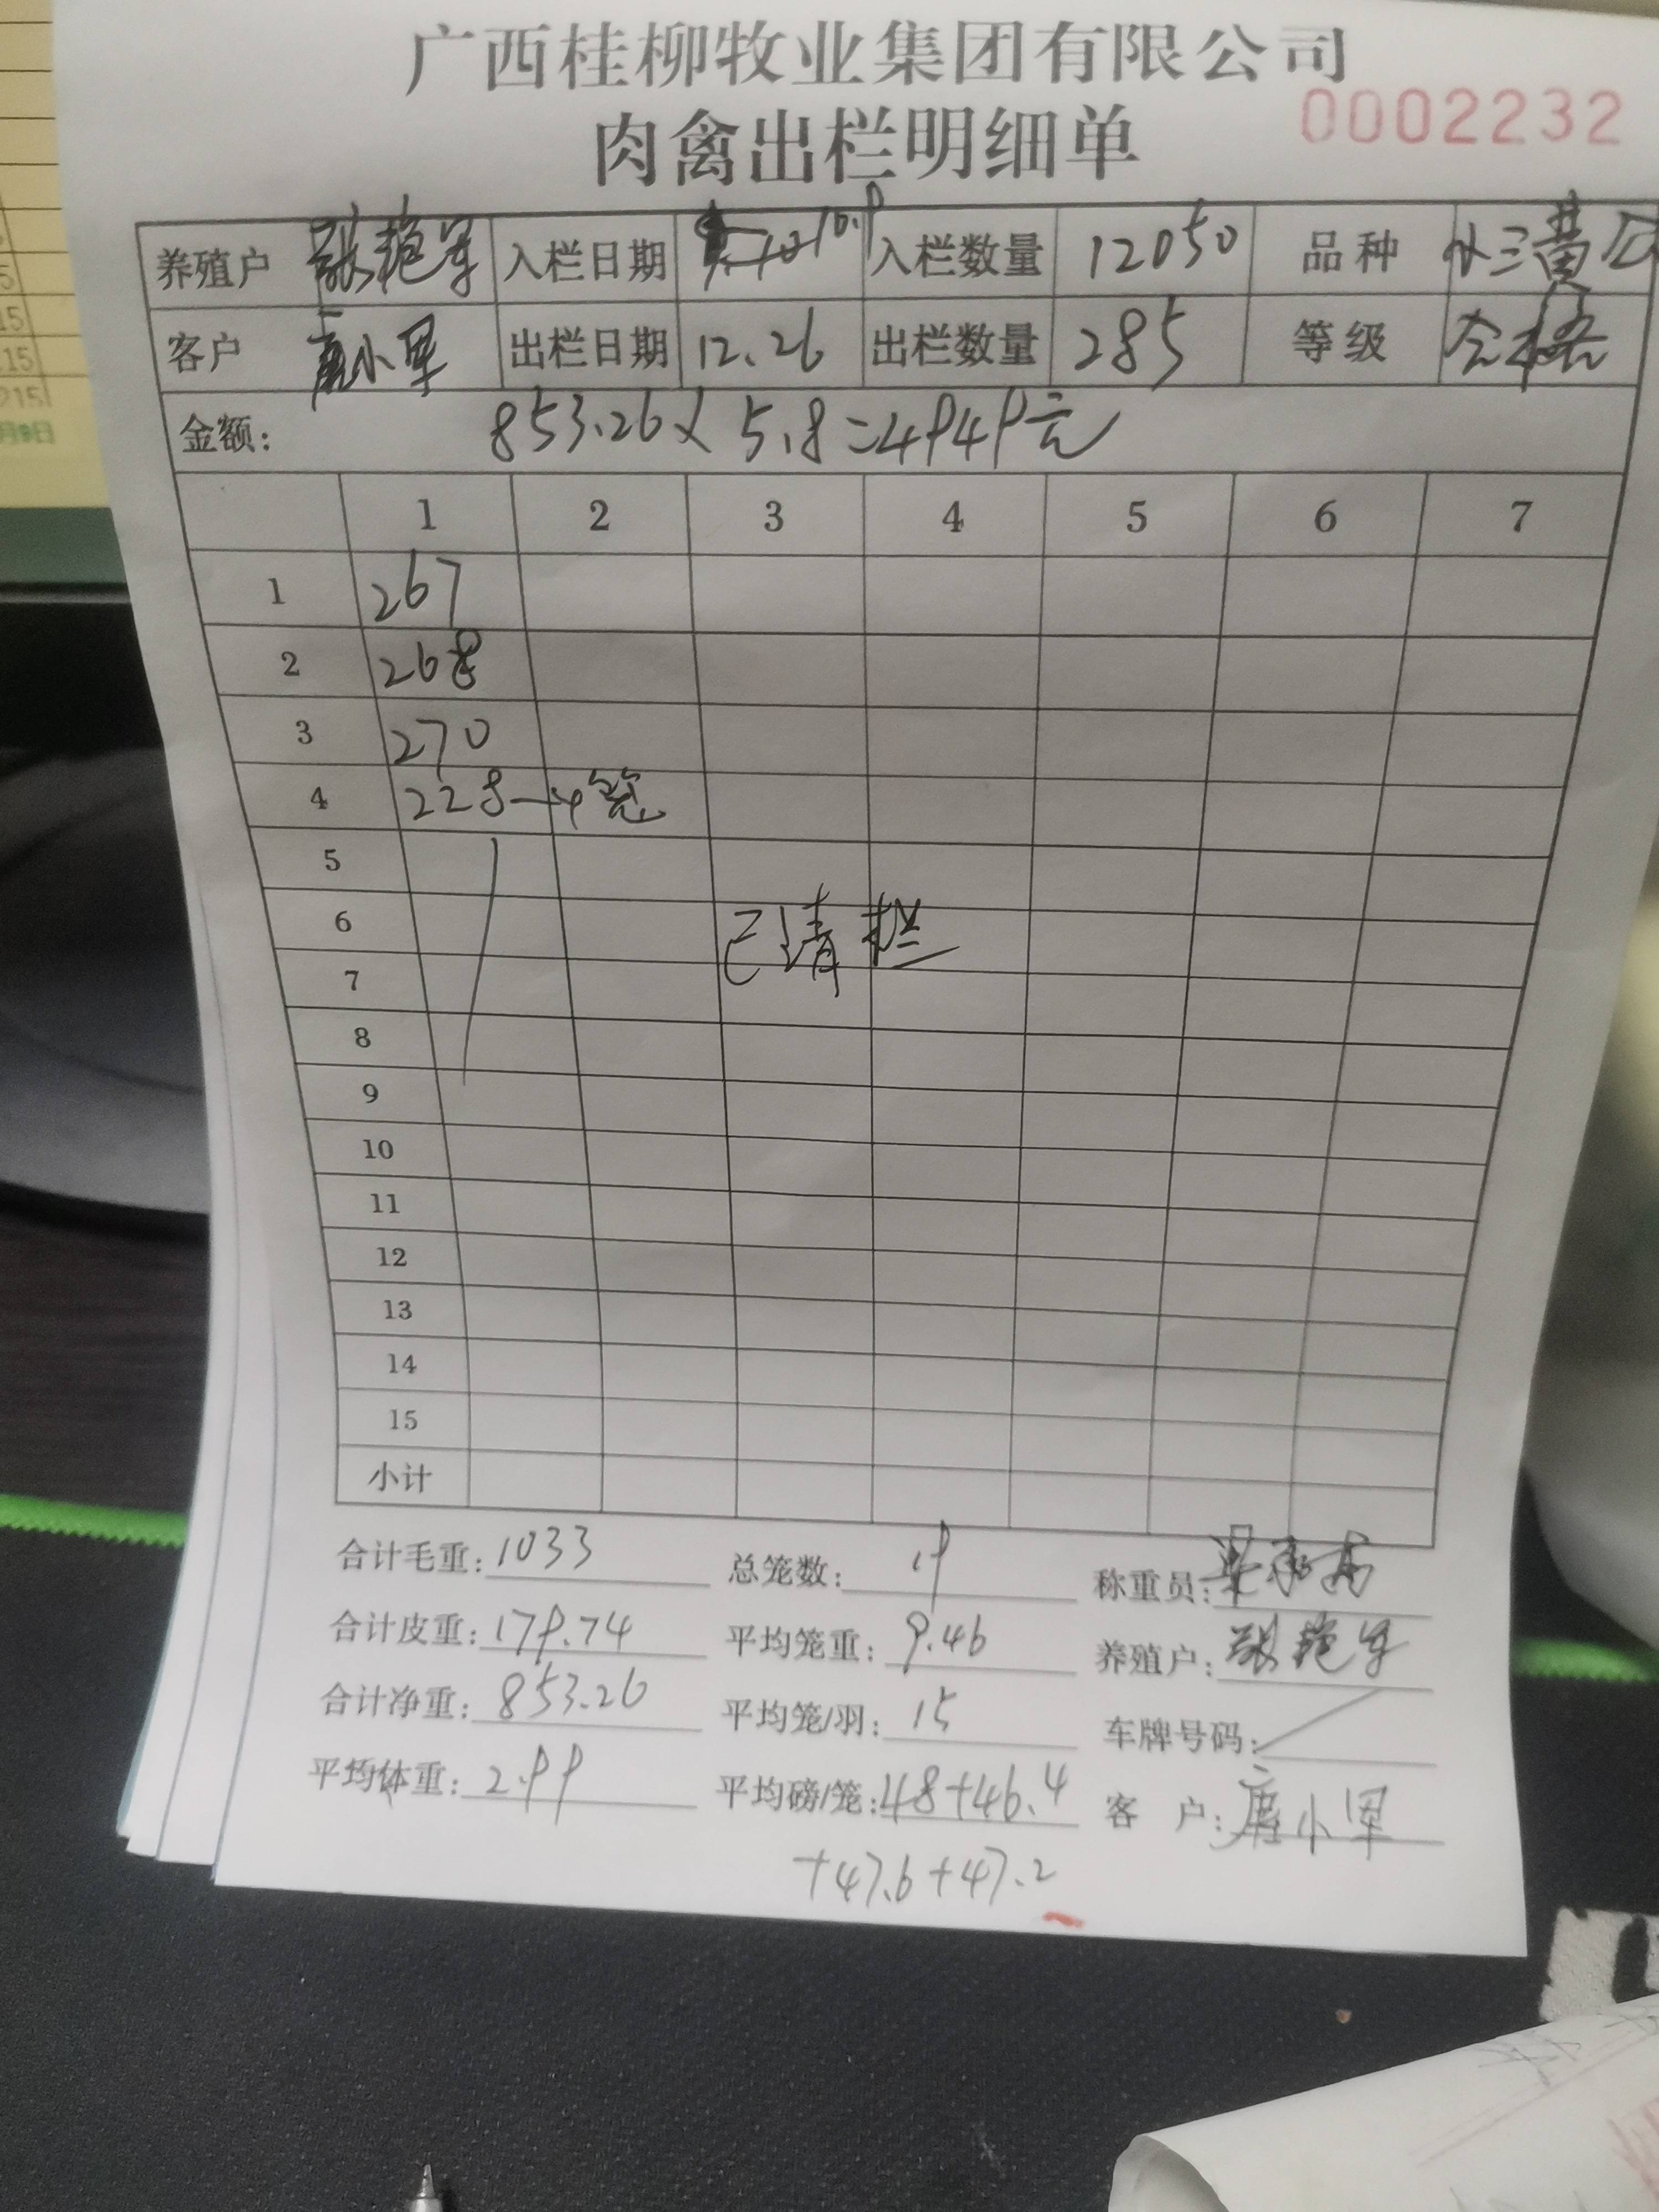 广西桂柳牧业集团有限公司
肉禽出栏明细单
0002232
养殖户 张艳军 入栏日期 10.9 入栏数量 12050 品种 小三黄公
客户 唐小军 出栏日期 12.26 出栏数量 285 等级 合格
金额: 853.26×5.8=4949元
1 2 3 4 5 6 7
1 267
2 268
3 270
4 228—4笼
5
6
已清栏
7
8
9
10
11
12
13
14
15
小计
合计毛重: 1033 总笼数: 19 称重员:
合计皮重: 179.74 平均笼重: 9.46 养殖户: 张艳军
合计净重: 853.26 平均笼/羽: 15 车牌号码: /
平均体重: 2.99 平均磅/笼: 48+46.4 客 户: 唐小军
+47.6+47.2